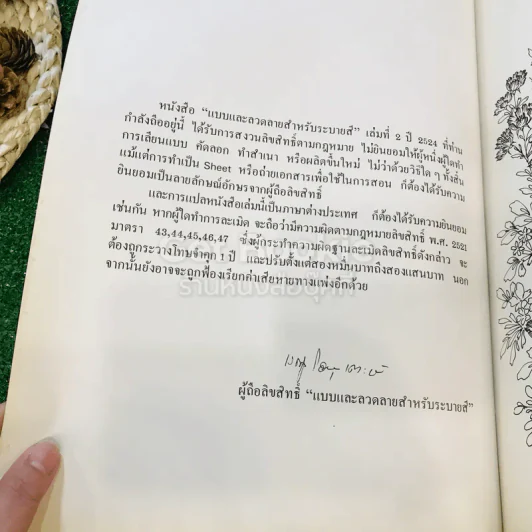 หนังสือ “แบบและลวดลายสำหรับระบายสี” เล่มที่ 2 ปี 2524 ที่ท่าน
กำลังถืออยู่นี้ ได้รับการสงวนลิขสิทธิ์ตามกฎหมาย ไม่ยินยอมให้ผู้หนึ่งผู้ใดทำ
การเลียนแบบ คัดลอก ทำสำเนา หรือผลิตขึ้นใหม่ ไม่ว่าด้วยวิธีใด ๆ ทั้งสิ้น
แม้แต่การทำเป็น Sheet หรือถ่ายเอกสารเพื่อใช้ในการสอน ก็ต้องได้รับความ
ยินยอมเป็นลายลักษณ์อักษรจากผู้ถือลิขสิทธิ์
และการแปลหนังสือเล่มนี้เป็นภาษาต่างประเทศ ก็ต้องได้รับความยินยอม
เช่นกัน หากผู้ใดทำการละเมิด จะถือว่ามีความผิดตามกฎหมายลิขสิทธิ์ พ.ศ. 2521
มาตรา 43,44,45,46,47 ซึ่งผู้กระทำความผิดฐานละเมิดลิขสิทธิ์ดังกล่าว จะ
ต้องถูกระวางโทษจำคุก 1 ปี และปรับตั้งแต่สองหมื่นบาทถึงสองแสนบาท นอก
จากนั้นยังอาจจะถูกฟ้องเรียกค่าเสียหายทางแพ่งอีกด้วย
ร้านหนังสือชุติ
ผู้ถือลิขสิทธิ์ “แบบและลวดลายสำหรับระบายสี”